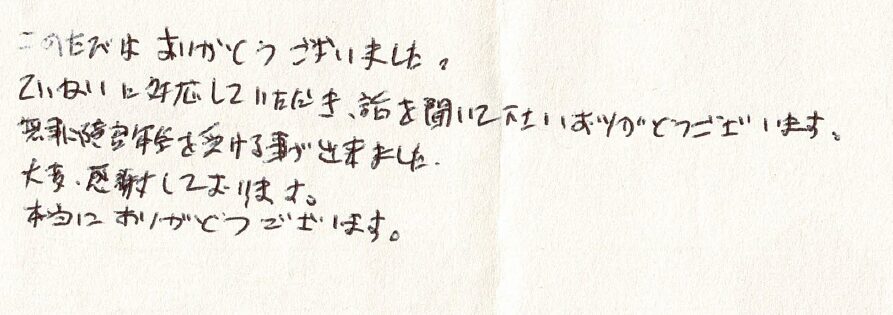 このたびはありがとうございました。
ていねいに対応していただき、話を聞いて下さいありがとうございます。
無事に障害年金を受ける事が出来ました.
大変、感謝しております。
本当にありがとうございます。